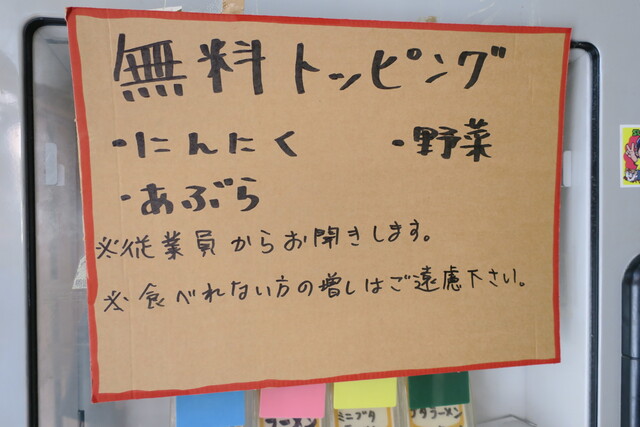 無料トッピング
・にんにく ・野菜
・あぶら
※従業員からお聞きします。
※食べれない方の増しはご遠慮下さい。
ラーメン
ミニブタ
ブタラーメン